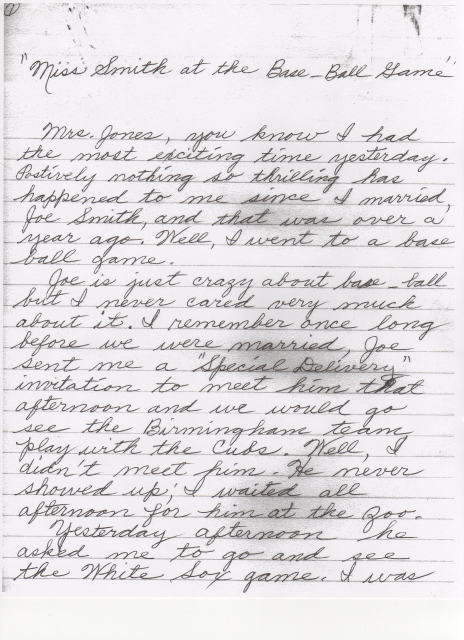 1
"Miss Smith at the Base-Ball Game"
Mrs. Jones, you know I had
the most exciting time yesterday.
Postively nothing so thrilling has
happened to me since I married,
Joe Smith, and that was over a
year ago. Well, I went to a base
ball game.
Joe is just crazy about base-ball
but I never cared very much
about it. I remember once long
before we were married, Joe
sent me a "Special Delivery"
invitation to meet him that
afternoon and we would go
see the Birmingham team
play with the Cubs. Well, I
didn't meet him. He never
showed up; I waited all
afternoon for him at the zoo.
Yesterday afternoon he
asked me to go and see
the White Sox game. I was